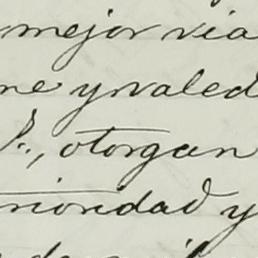 mejor via
ne y valed
P., otorgan
rioridad y